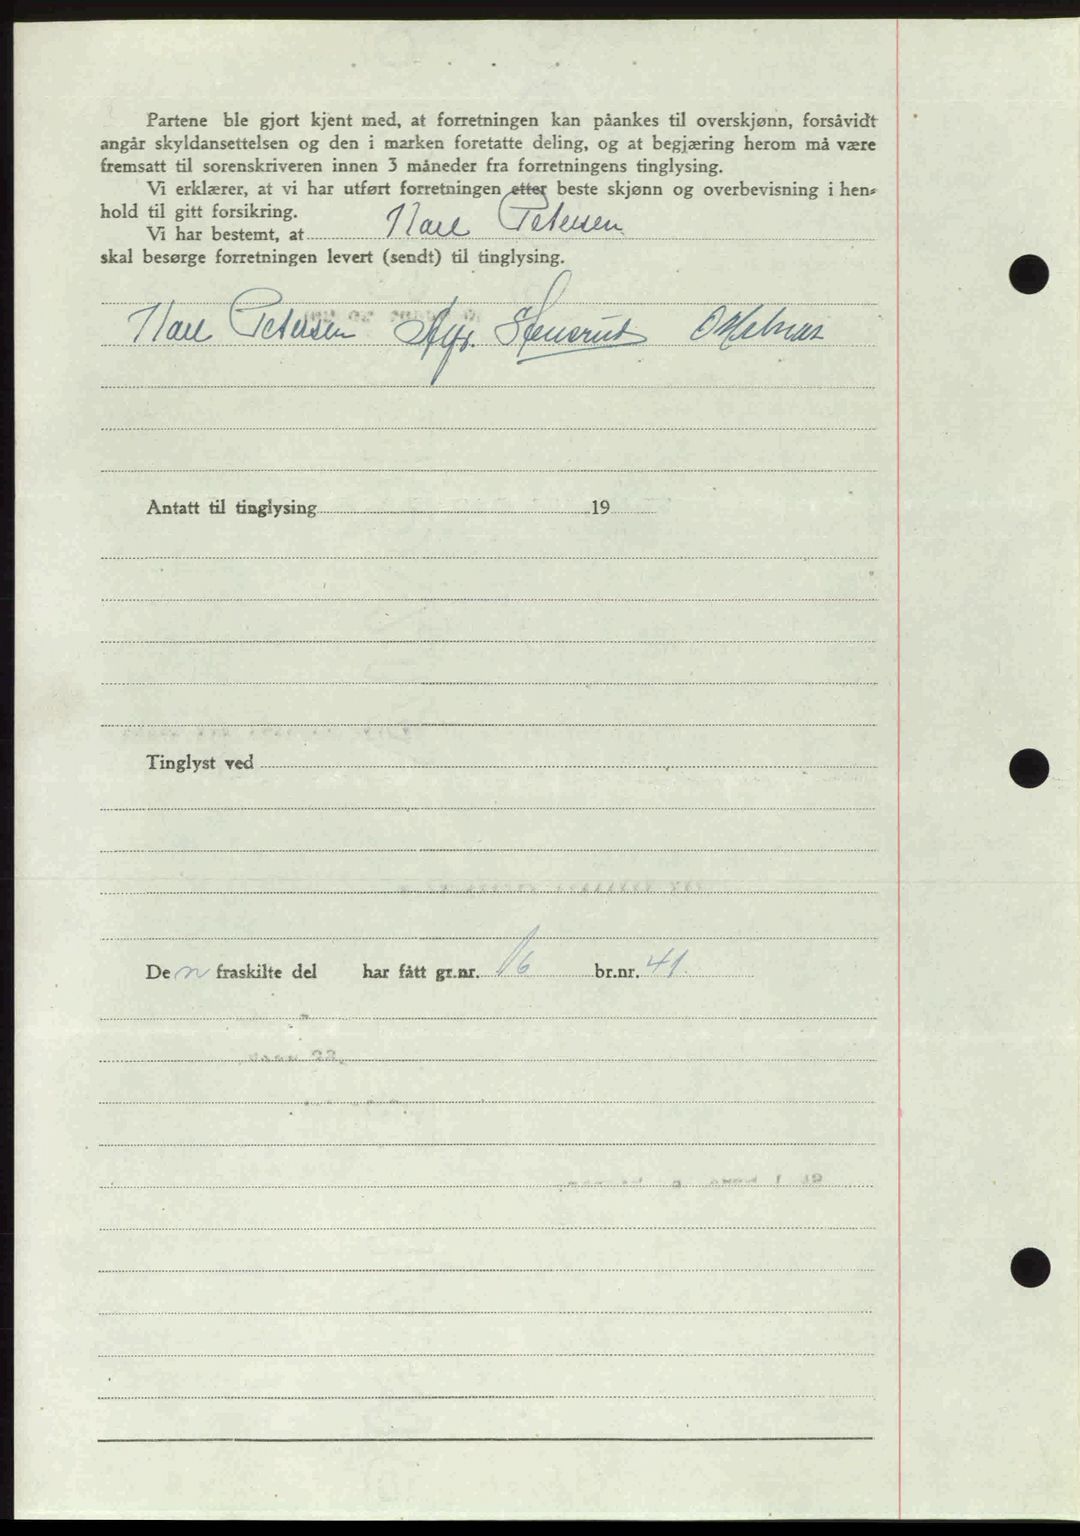 Partene ble gjort kjent med, at forretningen kan påankes til overskjønn, forsåvidt
angår skyldansettelsen og den i marken foretatte deling, og at begjæring herom må være
fremsatt til sorenskriveren innen 3 måneder fra forretningens tinglysing.
Vi erklærer, at vi har utført forretningen etter beste skjønn og overbevisning i hen-
hold til gitt forsikring.
Vi har bestemt, at Karl Petersen
skal besørge forretningen levert (sendt) til tinglysing.
Karl Petersen
Antatt til tinglysing 19
Tinglyst ved
Den fraskilte del har fått gr.nr. 16 br.nr. 41.